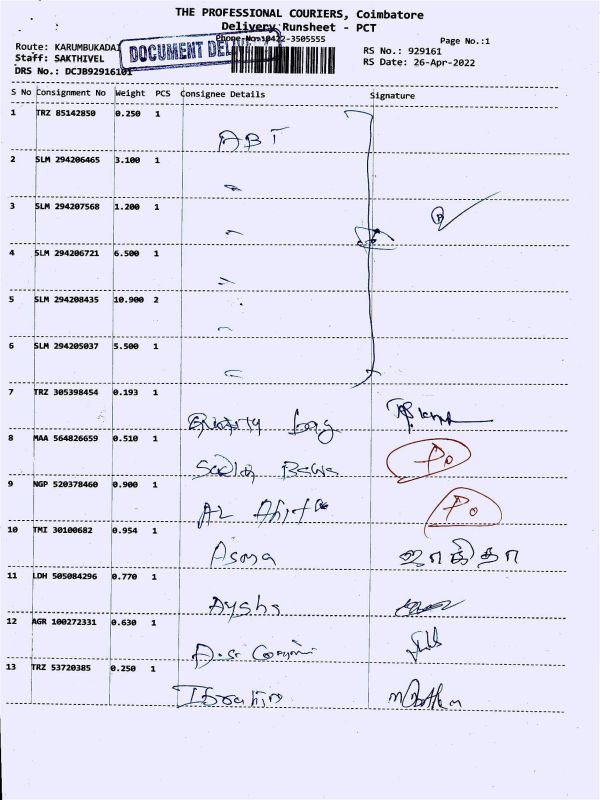 THE PROFESSIONAL COURIERS, Coimbatore
Delivery Runsheet - PCT
Phone No: 0422-3505555
Page No.:1
Route: KARUMBUKADAI
RS No.: 929161
Staff: SAKTHIVEL
RS Date: 26-Apr-2022
DRS No.: DCJB92916101
DOCUMENT DEL
S No Consignment No Weight PCS Consignee Details Signature
1 TRZ 85142850 0.250 1
ABT
2 SLM 294206465 3.100 1
3 SLM 294207568 1.200 1
4 SLM 294206721 6.500 1
5 SLM 294208435 10.900 2
6 SLM 294205037 5.500 1
7 TRZ 305398454 0.193 1
8 MAA 564826659 0.510 1
Po
9 NGP 520378460 0.900 1
AL Po
10 TMI 30100682 0.954 1
Asma
11 LDH 505084296 0.770 1
Aysha
12 AGR 100272331 0.630 1
13 TRZ 53720385 0.250 1
Ibrahim